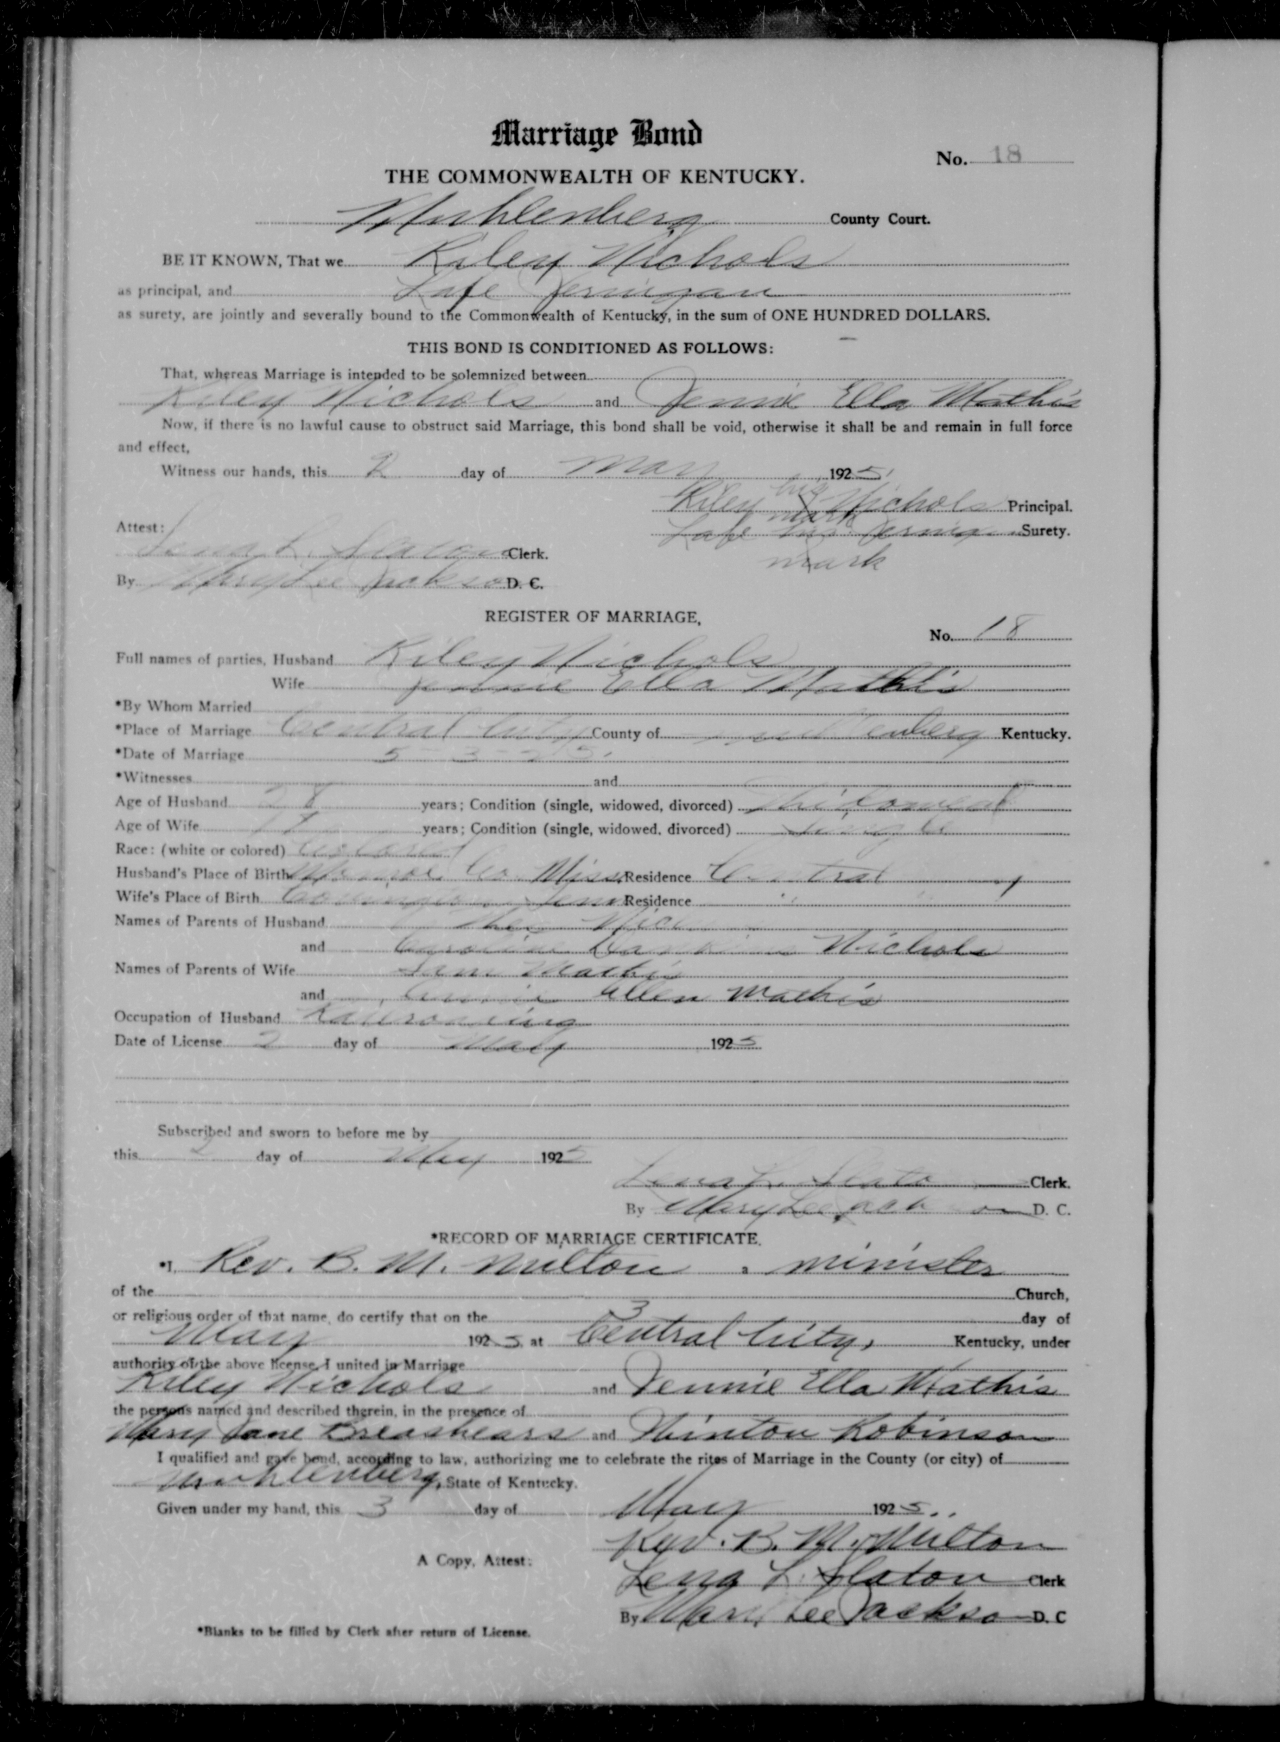 Marriage Bond
No. 18
THE COMMONWEALTH OF KENTUCKY.
Muhlenberg County Court.
BE IT KNOWN, That we Riley Nichols
as principal, and Lafe Jernigan
as surety, are jointly and severally bound to the Commonwealth of Kentucky, in the sum of ONE HUNDRED DOLLARS.
THIS BOND IS CONDITIONED AS FOLLOWS:
That, whereas Marriage is intended to be solemnized between
Riley Nichols and Jennie Ella Mathis
Now, if there is no lawful cause to obstruct said Marriage, this bond shall be void, otherwise it shall be and remain in full force
and effect,
Witness our hands, this 2 day of May 1925
Riley his X Nichols Principal.
mark
Attest: Lafe his Jernigan Surety.
mark
Lena L. Slaton Clerk.
By Mary Lee Jackson D. C.
REGISTER OF MARRIAGE,
No. 18
Full names of parties, Husband Riley Nichols
Wife Jennie Ella Mathis
*By Whom Married
*Place of Marriage Central City County of Muhlenberg Kentucky.
*Date of Marriage 5 - 3 - 25.
*Witnesses and
Age of Husband 28 years; Condition (single, widowed, divorced) Widowed
Age of Wife years; Condition (single, widowed, divorced) Single
Race: (white or colored) Colored
Husband's Place of Birth Monroe Co. Miss Residence Central
Wife's Place of Birth Covington Tenn Residence " "
Names of Parents of Husband
and Caroline Nichols
Names of Parents of Wife Sam Mathis
and Annie Ellen Mathis
Occupation of Husband Railroading
Date of License 2 day of May 1925
Subscribed and sworn to before me by
this 2 day of May 1925
Lena L. Slaton Clerk.
By Mary Lee Jackson D. C.
*RECORD OF MARRIAGE CERTIFICATE.
*I, Rev. B. M. Milton a minister
of the Church,
or religious order of that name, do certify that on the 3 day of
May 1925 at Central City, Kentucky, under
authority of the above license, I united in Marriage
Riley Nichols and Jennie Ella Mathis
the persons named and described therein, in the presence of
Mary Jane Breashears and Winton Robinson
I qualified and gave bond, according to law, authorizing me to celebrate the rites of Marriage in the County (or city) of
Muhlenberg, State of Kentucky.
Given under my hand, this 3 day of May 1925..
Rev. B. M. Milton
A Copy, Attest: Lena L. Slaton Clerk
By Mary Lee Jackson D. C
*Blanks to be filled by Clerk after return of License.